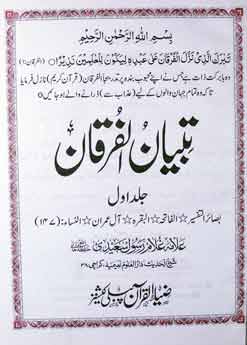 بِسْمِ اللّٰهِ الرَّحْمٰنِ الرَّحِيْمِ
تَبٰرَكَ الَّذِيْ نَزَّلَ الْفُرْقَانَ عَلٰى عَبْدِهٖ لِيَكُوْنَ لِلْعٰلَمِيْنَ نَذِيْرًا (الفرقان:۱)
وہ بابرکت ذات ہے جس نے اپنے محبوب بندہ پر بتدریج الفرقان (قرآن کریم) نازل فرمایا
تاکہ وہ تمام جہان والوں کے لیے (عذاب سے) ڈرانے والے ہو جائیں
تبیان الفرقان
جلد اول
بصائر التفسیر ☆ الفاتحہ ☆ البقرہ ☆ آل عمران ☆ النساء: (۱۴۷)
علامہ غلام رسول سعیدی
شیخ الحدیث دارالعلوم نعیمیہ، کراچی۔۳۸
ضیاء القرآن پبلی کیشنز